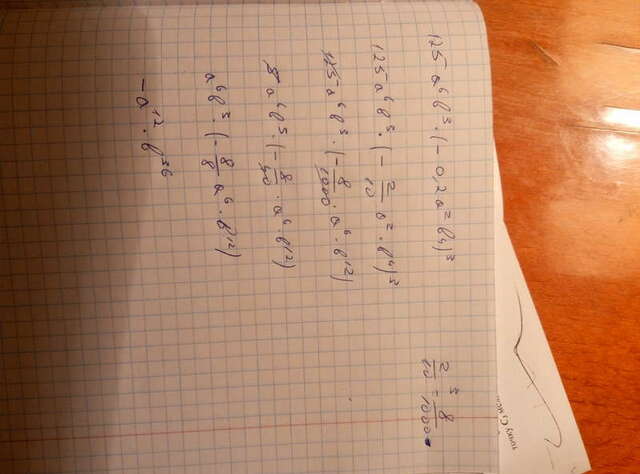 125 a⁶b³·(− 0,2a²b⁴)³
125 a⁶b³·(− 2/10 a²·b⁴)³
125 a⁶b³·(− 8/1000·a⁶·b¹²)
5 a⁶b³·(− 8/40·a⁶·b¹²)
a⁶b³·(− 8/8 a⁶·b¹²)
− a¹²·b³⁶
2³/10 = 8/1000